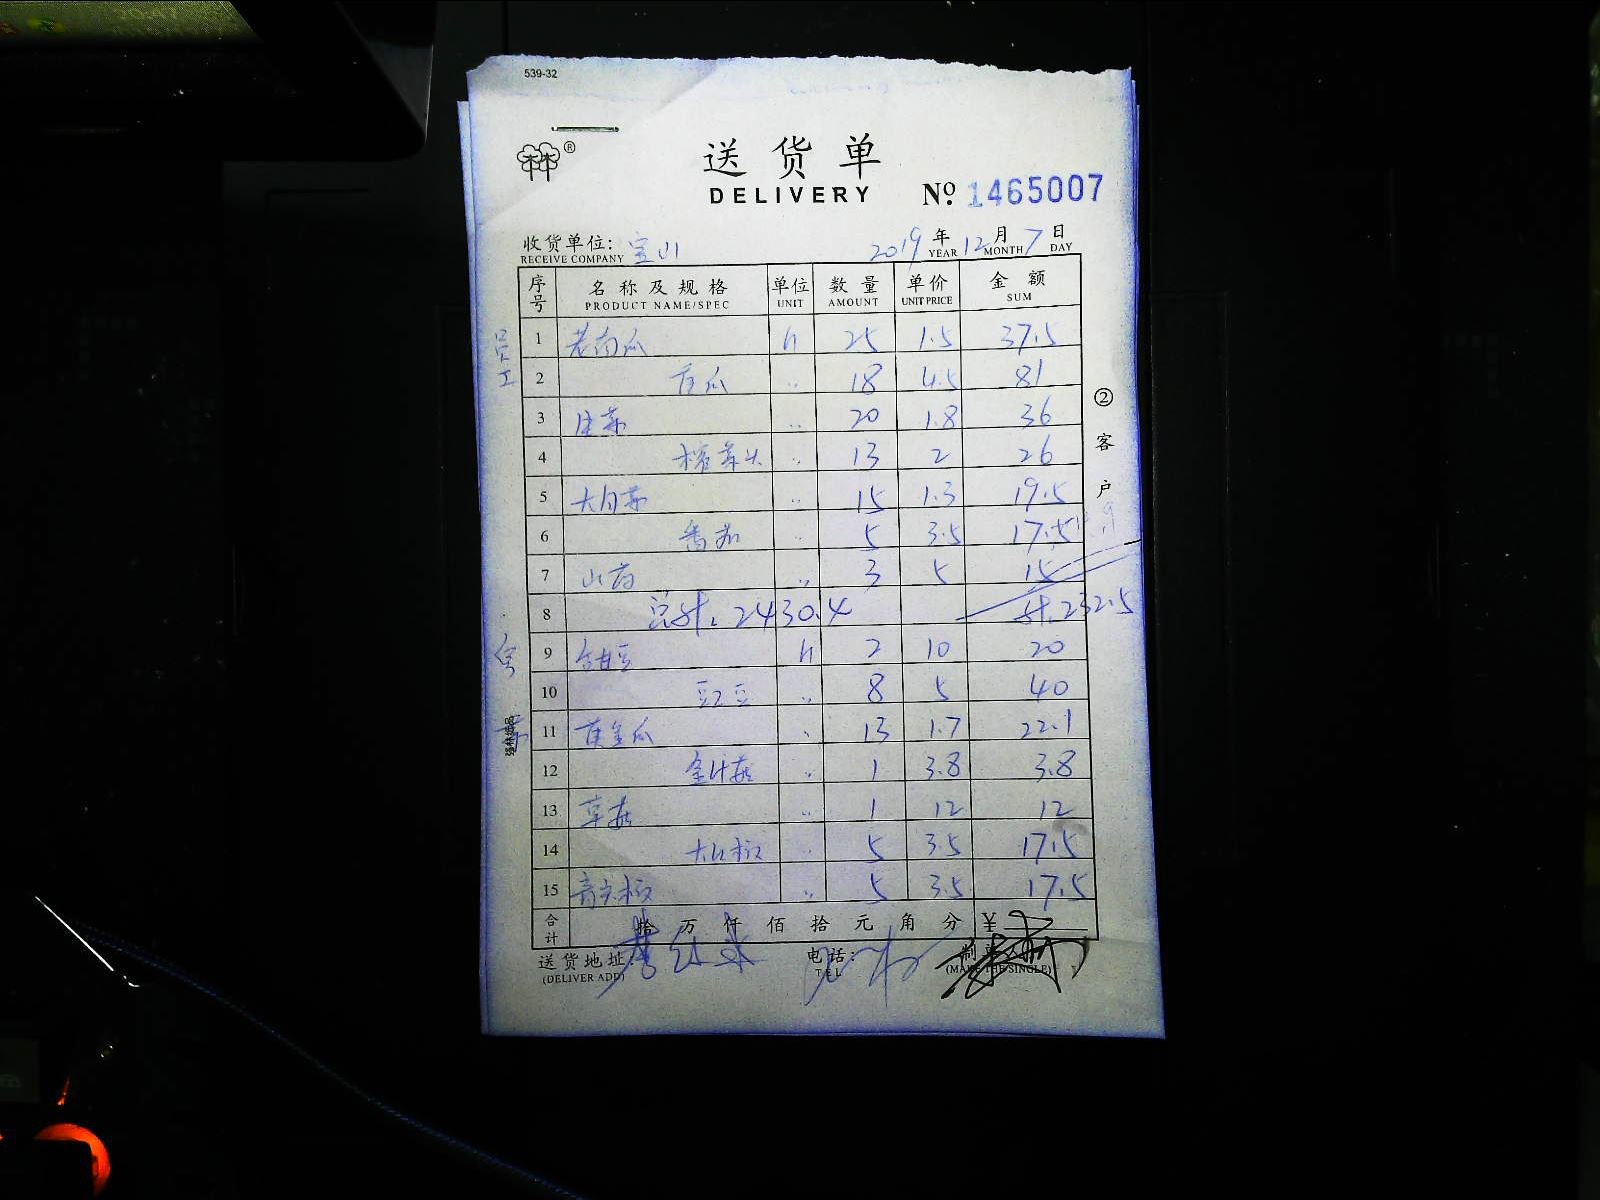 539-32
送货单
DELIVERY
№ 1465007
收货单位: 宝山
RECEIVE COMPANY
2019年12月7日
YEAR MONTH DAY
序号 名称及规格 单位 数量 单价 金额
PRODUCT NAME/SPEC UNIT AMOUNT UNIT PRICE SUM
员工
1 老南瓜 斤 25 1.5 37.5
2 瓜 〃 18 4.5 81
3 生菜 〃 20 1.8 36
4 榨菜头 〃 13 2 26
5 大白菜 〃 15 1.3 19.5
6 番茄 〃 5 3.5 17.5
7 山药 〃 3 5 15
8 总计: 2430.4 计: 232.5
9 豆 斤 2 10 20
10 豇豆 〃 8 5 40
11 黄金瓜 〃 13 1.7 22.1
12 金针菇 〃 1 3.8 3.8
13 草菇 〃 1 12 12
14 大红椒 〃 5 3.5 17.5
15 青尖椒 〃 5 3.5 17.5
合计 拾 万 仟 佰 拾 元 角 分 ¥
送货地址:
(DELIVER ADD)
电话:
TEL
制单人
(MAKE THE SINGLE)
② 客户